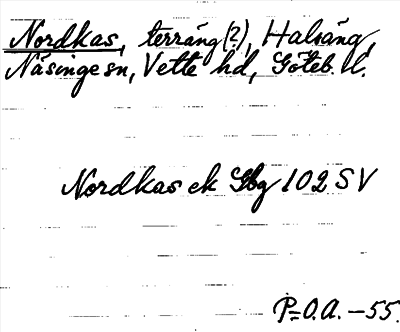 Nordkas, terräng(?), Halsäng,
Näsinge sn, Vette hd, Göteb. l.
Nordkas ek Gbg 102 SV
P=O.A. -55.